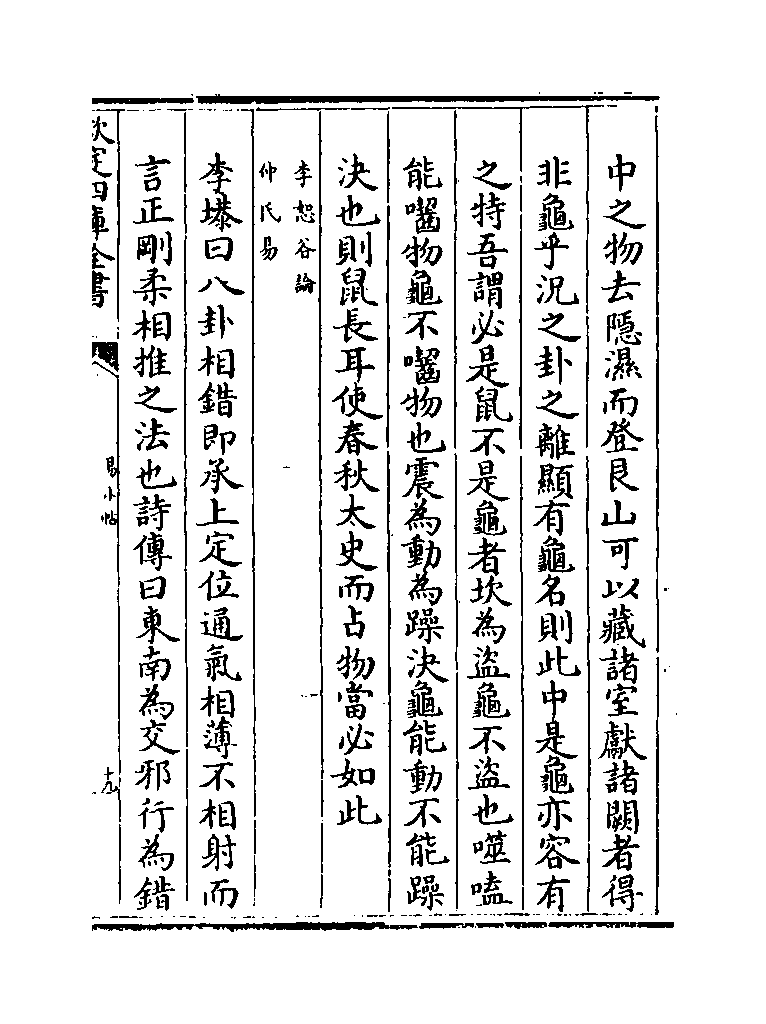 中之物去隱濕而登艮山可以藏諸室獻諸闕者得
非龜乎況之卦之離顯有龜名則此中是龜亦容有
之特吾謂必是鼠不是龜者坎為盜龜不盜也噬嗑
能嚙物龜不嚙物也震為動為躁決龜能動不能躁
決也則鼠長耳使春秋太史而占物當必如此
李恕谷論
仲氏易
李塨曰八卦相錯即承上定位通氣相薄不相射而
言正剛柔相推之法也詩傳曰東南為交邪行為錯
欽定四庫全書
易小帖
十九